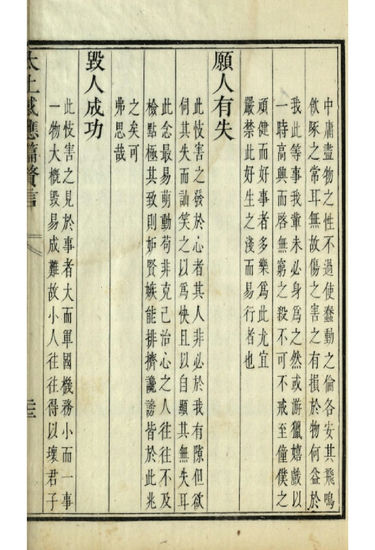 中庸盡物之性不過使蠢動之倫各安其飛鳴
飲啄之常耳無故傷之害之有損於物何益於
我此等事我輩未必身爲之然或游獵嬉戲以
一時高興而啓無窮之殺不可不戒至僮僕之
頑健而好事者多樂爲此尤宜
嚴禁此好生之淺而易行者也
願人有失
此忮害之發於心者其人非必於我有隙但欲
伺其失而訕笑之以爲快且以自顯其無失耳
此念最易萌動苟非克己治心之人往往不及
檢點極其致則如賢嫉能排擠讒謗皆於此兆
之矣可
弗思哉
毀人成功
此忮害之見於事者大而軍國機務小而一事
一物大概毀易成難故小人往往得以壞君子
太上感應篇贅言
三十